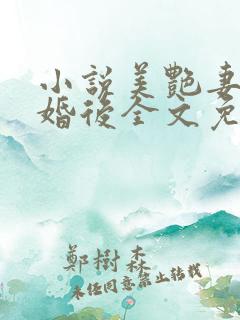 小說美艷妻
婚後全文免
鄭樹森
未经同意禁止转载